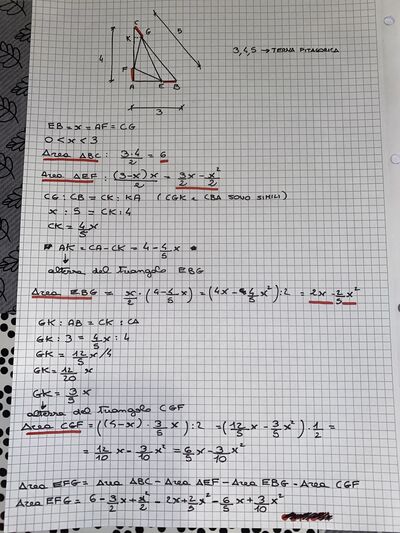 C
K
G
5
4
3,4,5 → TERNA PITAGORICA
F
A
E
B
3
EB = x = AF = CG
0 < x < 3
Area ABC : 3·4/2 = 6
Area AEF : (3-x)x/2 = 3/2x - x²/2
CG : CB = CK : KA (CGK e CBA SONO SIMILI)
x : 5 = CK : 4
CK = 4/5 x
AK = CA - CK = 4 - 4/5 x
altezza del triangolo EBG
Area EBG = x/2 · (4 - 4/5 x) = (4x - 4/5 x²) : 2 = 2x - 2/5 x²
GK : AB = CK : CA
GK : 3 = 4/5 x : 4
GK = 12/5 x/4
GK = 12/20 x
GK = 3/5 x
altezza del triangolo CGF
Area CGF = ((4-x) · 3/5 x) : 2 = (12/5 x - 3/5 x²) · 1/2 =
= 12/10 x - 3/10 x² = 6/5 x - 3/10 x²
Area EFG = Area ABC - Area AEF - Area EBG - Area CGF
Area EFG = 6 - 3/2 x + x²/2 - 2x + 2/5 x² - 6/5 x + 3/10 x²